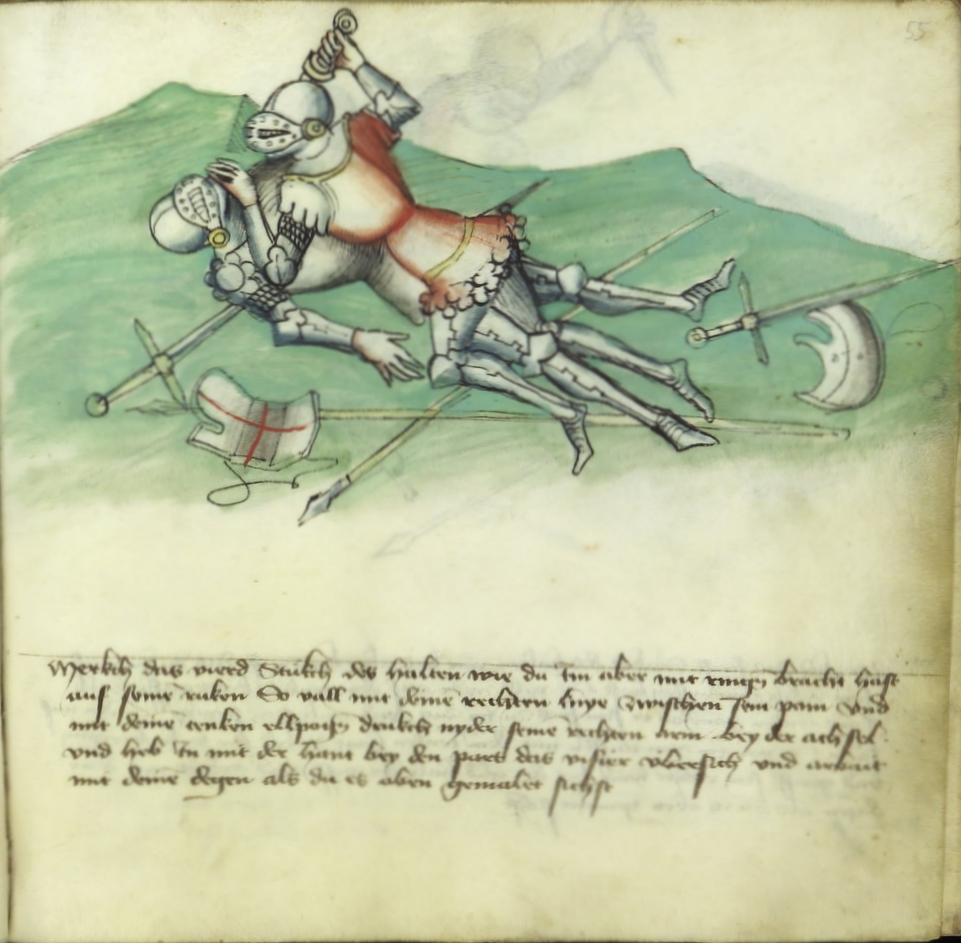 55
Merckh das vierd Stückh des halten wie du im aber mit ringen bracht hast
auf seine rucken So vall mit deinē rechten knye zwischen sein pain vnd
mit deinē tenken ellpogn druckh nyder seinē rechten arm bey der achsel
vnd heb im mit der hant bey den part das visier vbersich vnd arbait
mit deinē degen als du es oben gemalet sichst